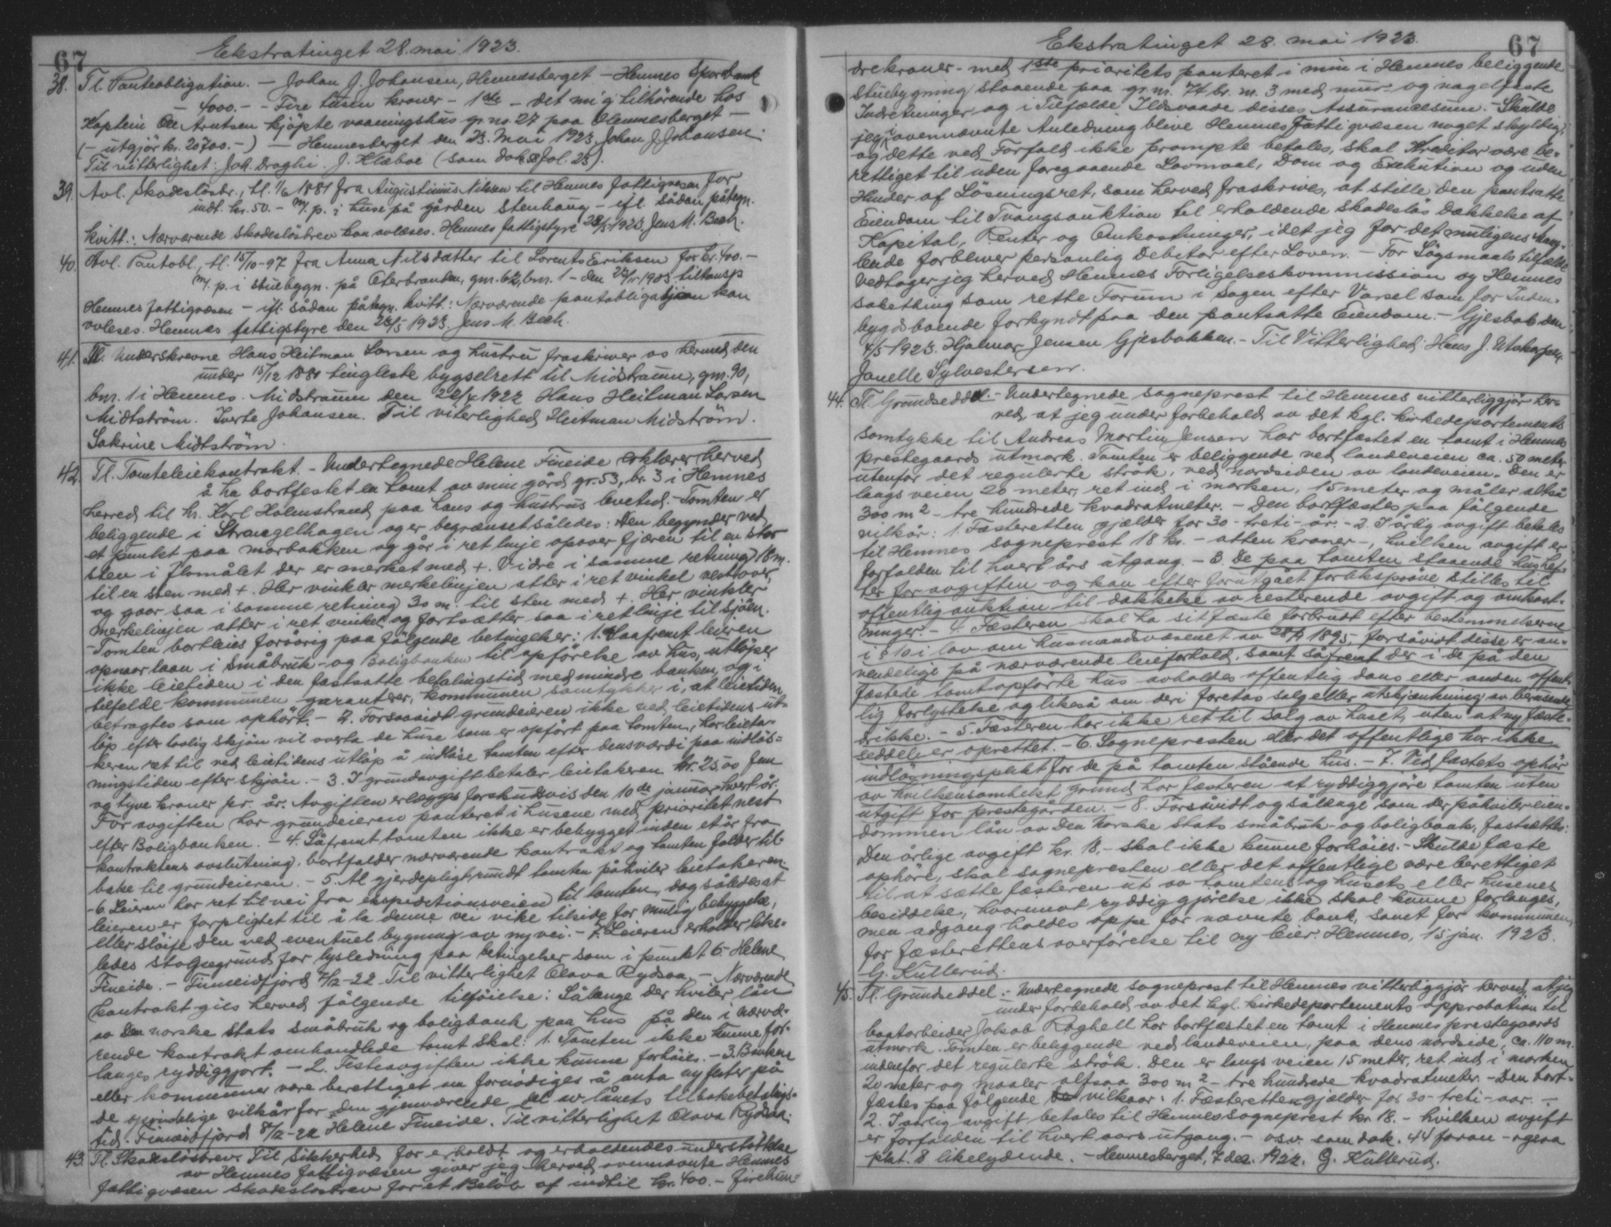 67
Ekstratinget 28. mai 1923.
38. Tl. Panteobligation. — Johan J. Johansen, Hemnesberget — Hemnes Sparebank
— 4000.- - Fire tusen kroner - 1ste - det mig tilhörende hos
Kaptein Ole Arntsen kjöpte vaaningshus gr. no 27 paa Hemnesberget —
(- utgjör kr. 20700.-) — Hemnesberget den 23. Mai 1923 Johan J. Johansen.
Til vitterlighet: Joh. Draghi. J. Klæboe (som dok. fol. 25).
39. Avl. Skadeslösbr., tl. 1/6 1881 fra Augustinus Nilsen til Hemnes Fattigvæsen for
indt. kr. 50.- m. p. i huse på gården Stenhaug - ifl. sådan påtegn.
kvitt.: Nærværende skadeslösbrev kan avleses. Hemnes fattigstyre 28/5 1923. Jens M. Bech.
40. Avl. Pantobl., tl. 15/10-97 fra Anna Nilsdatter til Lorents Eriksen for kr. 400.-
m. p. i stuebygn. på Oterbranten, gnr. 62, bnr. 1 - den 1903 tiltransp.
Hemnes fattigvæsen - ifl. sådan påtegn. kvitt: Nærværende pantobligation kan
avleses. Hemnes fattigstyre den 28/5 1923. Jens M. Bech.
41. Tl. Underskrevne Hans Heitman Larsen og hustru fraskriver os hermed den
under 15/12 1881 tingleste bygselrett til Midstraum, gnr. 90,
bnr. 1 i Hemnes. Midstraum den 1922 Hans Heitman Larsen
Midtström. Iverte Johansen. Til viterlighed Heitman Midström.
Sakrine Midtström.
42. Tl. Tomteleiekontrakt. - Undertegnede Helene Fineide erklærer herved
å ha bortfestet en tomt av min gård gr. 53, br. 3 i Hemnes
herred til hr. Karl Holmstrand paa hans og hustrus levetid. - Tomten er
beliggende i Strangelhagen og er begrænset således: Den begynder ved
et punkt paa marbakken og går i ret linje opover fjæren til en stor
sten i flomålet der er merket med +. Videre i samme retning 18 m.
til en sten med +. Her vinkler merkelinjen atter i ret vinkel vestover,
og gaar saa i samme retning 30 m. til sten med +. Her vinkler
merkelinjen atter i ret vinkel og fortsætter saa i ret linje til sjöen.
- Tomten bortleies forövrig paa fölgende betingelser: 1. Saafremt leieren
opnaar laan i Småbruk- og Boligbanken til opförelse av hus, utlöper
ikke leietiden i den fastsatte betalingstid medmindre banken, og i
tilfelde kommunen, garanterer, kommunen samtykker i, at leietiden
betragtes som ophört. - 2. Forsaavidt grundeieren ikke ved leietidens ut-
löp efter lovlig skjön vil overta de huse som er opfört paa tomten, har leieta-
keren ret til ved leietidens utlöp å indlöse tomten efter dens værdi paa indlös-
ningstiden efter skjön. - 3. I grundavgift betaler leietakeren kr. 25.00 fem
og tyve kroner pr. år. Avgiften erlægges forskudsvis den 10de januar hvert år.
For avgiften har grundeieren panteret i husene med prioritet nest
efter Boligbanken. - 4. Såfremt tomten ikke er bebygget inden et år fra
kontraktens avslutning, bortfalder nærværende kontrakt og tomten falder til-
bake til grundeieren. - 5. Al gjerdepligt rundt tomten påhviler leietakeren.
- 6. Leieren har ret til vei fra ekspeditionsveien til tomten, dog således at
leieren er forpligtet til å la denne vei vike tilside for mulig bebyggelse,
eller slöife den ved eventuel bygning av ny vei. - 7. Leieren erholder like-
ledes stolpegrund for lysledning paa betingelser som i punkt 6. Helene
Fineide. - Finneidfjord 8/12-22 Til vitterlighet Olava Rydsaa. - Nærværende
kontrakt gis herved fölgende tilföielse: Sålænge der hviler lån
av Den norske stats småbruk og boligbank paa hus på den i nærvæ-
rende kontrakt omhandlede tomt skal: 1. Tomten ikke kunne for-
langes ryddiggjort. - 2. Festeavgiften ikke kunne forhöies. - 3. Banken
eller kommunen være berettiget om fornödiges å anta ny fester på
de oprindelige vilkår for den gjenværende del av lånets tilbakebetalings-
tid. Finneidfjord 8/12-22 Helene Fineide. Til vitterlighet Olava Rydsaa.
43. Tl. Skadeslösbrev. Til Sikkerhed for erholdt og erholdendes understöttelse
av Hemnes fattigvæsen giver jeg herved ovennævnte Hemnes
fattigvæsen skadeslösbrev for et Belöb af indtil kr. 400.- firehun-
67
Ekstratinget 28. mai 1923.
drekroner - med 1ste prioritets panteret i min i Hemnes beliggende
Stuebygning staaende paa gr. nr. 74 br. nr. 3 med mur- og nagelfaste
Indretninger og i Tilfælde Ildsvaade disses Assurancesum. - Skulde
jeg i ovennævnte Anledning blive Hemnes Fattigvæsen noget skyldig,
og dette ved Forfald ikke prompte betales, skal Kreditor være be-
rettiget til uden foregaaende Lovmaal, Dom og Exekution og uden
Hinder af Lösningsret, som herved fraskrives, at stille den pantsatte
Eiendom til Tvangsauktion til erholdende skadeslös Dækkelse af
Kapital, Renter og Omkostninger, idet jeg for det muligens mang-
lende forbliver personlig Debitor efter Loven. - For Lögsmaals tilfælde
vedtager jeg herved Hemnes Forligelseskommission og Hemnes
saksting som rette Forum i Sagen efter Varsel som for Inden-
bygdsboende forkyndt paa den pantsatte Eiendom. - Gjesbak den
4/5 1923. Hjalmar Jensen Gjesbakken. - Til Vitterlighed: Hans J. Utskarpen,
Janelle Sylvestersen.
44. Tl. Grundseddel. - Undertegnede sogneprest til Hemnes vitterliggjör her-
ved, at jeg under forbehold av det kgl. kirkedepartements
samtykke til Andreas Martin Jensen har bortfæstet en tomt i Hemnes
prestegaards utmark. Tomten er beliggende ved landeveien ca. 50 meter
utenfor det regulerte strök, ved nordsiden av landeveien. Den er
langs veien 20 meter, ret ind i marken, 15 meter og måler altså
300 m² - tre hundrede kvadratmeter. - Den bortfæstes paa fölgende
vilkår: 1. Fæsteretten gjælder for 30 - treti - år. - 2. I årlig avgift betales
til Hemnes sogneprest 18 kr. - atten kroner -, hvilken avgift er
forfalden til hvert års utgang. - 3. De paa tomten staaende hus hef-
ter for avgiften og kan efter forutgået forliksprøve stilles til
offentlig auktion til dækkelse av resterende avgift og omkost-
ninger. - 4. Fæsteren skal ha sit fæste forbrudt efter bestemmelserne
i § 10 i lov om husmandsvæsenet av 1895 forsåvidt disse er an-
vendelige på nærværende leieforhold, samt såfremt der i de på den
fæstede tomt opförte hus avholdes offentlig dans eller anden offent-
lig forlystelse og likeså om der i foretas salg eller utskjænkning av berusende
drikke. - 5. Fæsteren har ikke ret til salg av huset, uten at ny fæste-
seddel er oprettet. - 6. Sognepresten eller det offentlige har ikke
indlösningsplikt for de på tomten stående hus. - 7. Ved fæstets ophör
av hvilkensomhelst grund har fæsteren at ryddiggjöre tomten uten
utgift for prestegården. - 8. Forsåvidt og sålænge som der påhviler eien-
dommen lån av Den norske stats småbruk- og boligbank, fastsættes:
Den årlige avgift kr. 18.- skal ikke kunne forhöies. - Skulde fæste
ophöre, skal sognepresten eller det offentlige være berettiget
til at sætte fæsteren ut av tomtens og husets eller husenes
besiddelse, hvorimot ryddiggjörelse ikke skal kunne forlanges,
men adgang holdes oppe for nævnte bank, samt for kommunen,
for fæsterettens overförelse til ny leier. Hemnes, 15 jan. 1923.
G. Kullerud.
45. Tl. Grundseddel: Undertegnede sogneprest til Hemnes vitterliggjör herved, at jeg
under forbehold av det kgl. kirkedepartements approbation til
baatarbeider Jakob Røghell har bortfæstet en tomt i Hemnes prestegaards
utmark. Tomten er beliggende ved landeveien, paa dens nordside, ca. 110 m.
utenfor det regulerte strök. Den er langs veien 15 meter, ret ind i marken
20 meter og maaler altsaa 300 m² - tre hundrede kvadratmeter. - Den bort-
fæstes paa fölgende vilkaar: 1. Fæsteretten gjælder for 30 - treti - aar. -
2. I aarlig avgift betales til Hemnes sogneprest kr. 18.- hvilken avgift
er forfalden til hvert aars utgang. - osv. som dok. 44 foran - ogsaa
pkt. 8 likelydende. - Hemnesberget, 7 des. 1922. G. Kullerud.